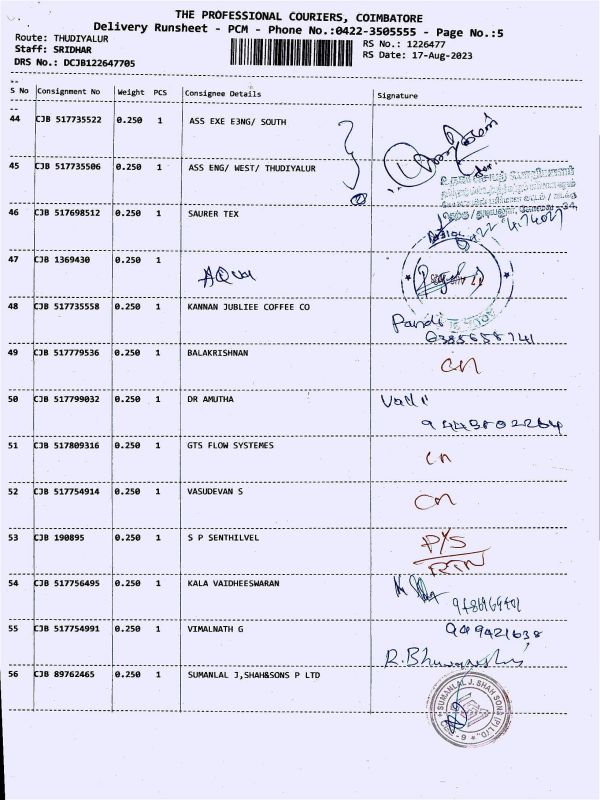 THE PROFESSIONAL COURIERS, COIMBATORE
Delivery Runsheet - PCM - Phone No.:0422-3505555 - Page No.:5
Route: THUDIYALUR
RS No.: 1226477
Staff: SRIDHAR
RS Date: 17-Aug-2023
DRS No.: DCJB122647705
S No Consignment No Weight PCS Consignee Details Signature
44 CJB 517735522 0.250 1 ASS EXE E3NG/ SOUTH
45 CJB 517735506 0.250 1 ASS ENG/ WEST/ THUDIYALUR
46 CJB 517698512 0.250 1 SAURER TEX
47 CJB 1369430 0.250 1
AQua
48 CJB 517735558 0.250 1 KANNAN JUBLIEE COFFEE CO Pandi
6385658741
49 CJB 517779536 0.250 1 BALAKRISHNAN cn
50 CJB 517799032 0.250 1 DR AMUTHA Valli
9443802264
51 CJB 517809316 0.250 1 GTS FLOW SYSTEMES cn
52 CJB 517754914 0.250 1 VASUDEVAN S cn
53 CJB 190895 0.250 1 S P SENTHILVEL P/S
RTN
54 CJB 517756495 0.250 1 KALA VAIDHEESWARAN
55 CJB 517754991 0.250 1 VIMALNATH G 949421638
R.Bhuvaneshwari
56 CJB 89762465 0.250 1 SUMANLAL J,SHAH&SONS P LTD
SUMANLAL J. SHAH SONS (P) LTD.,